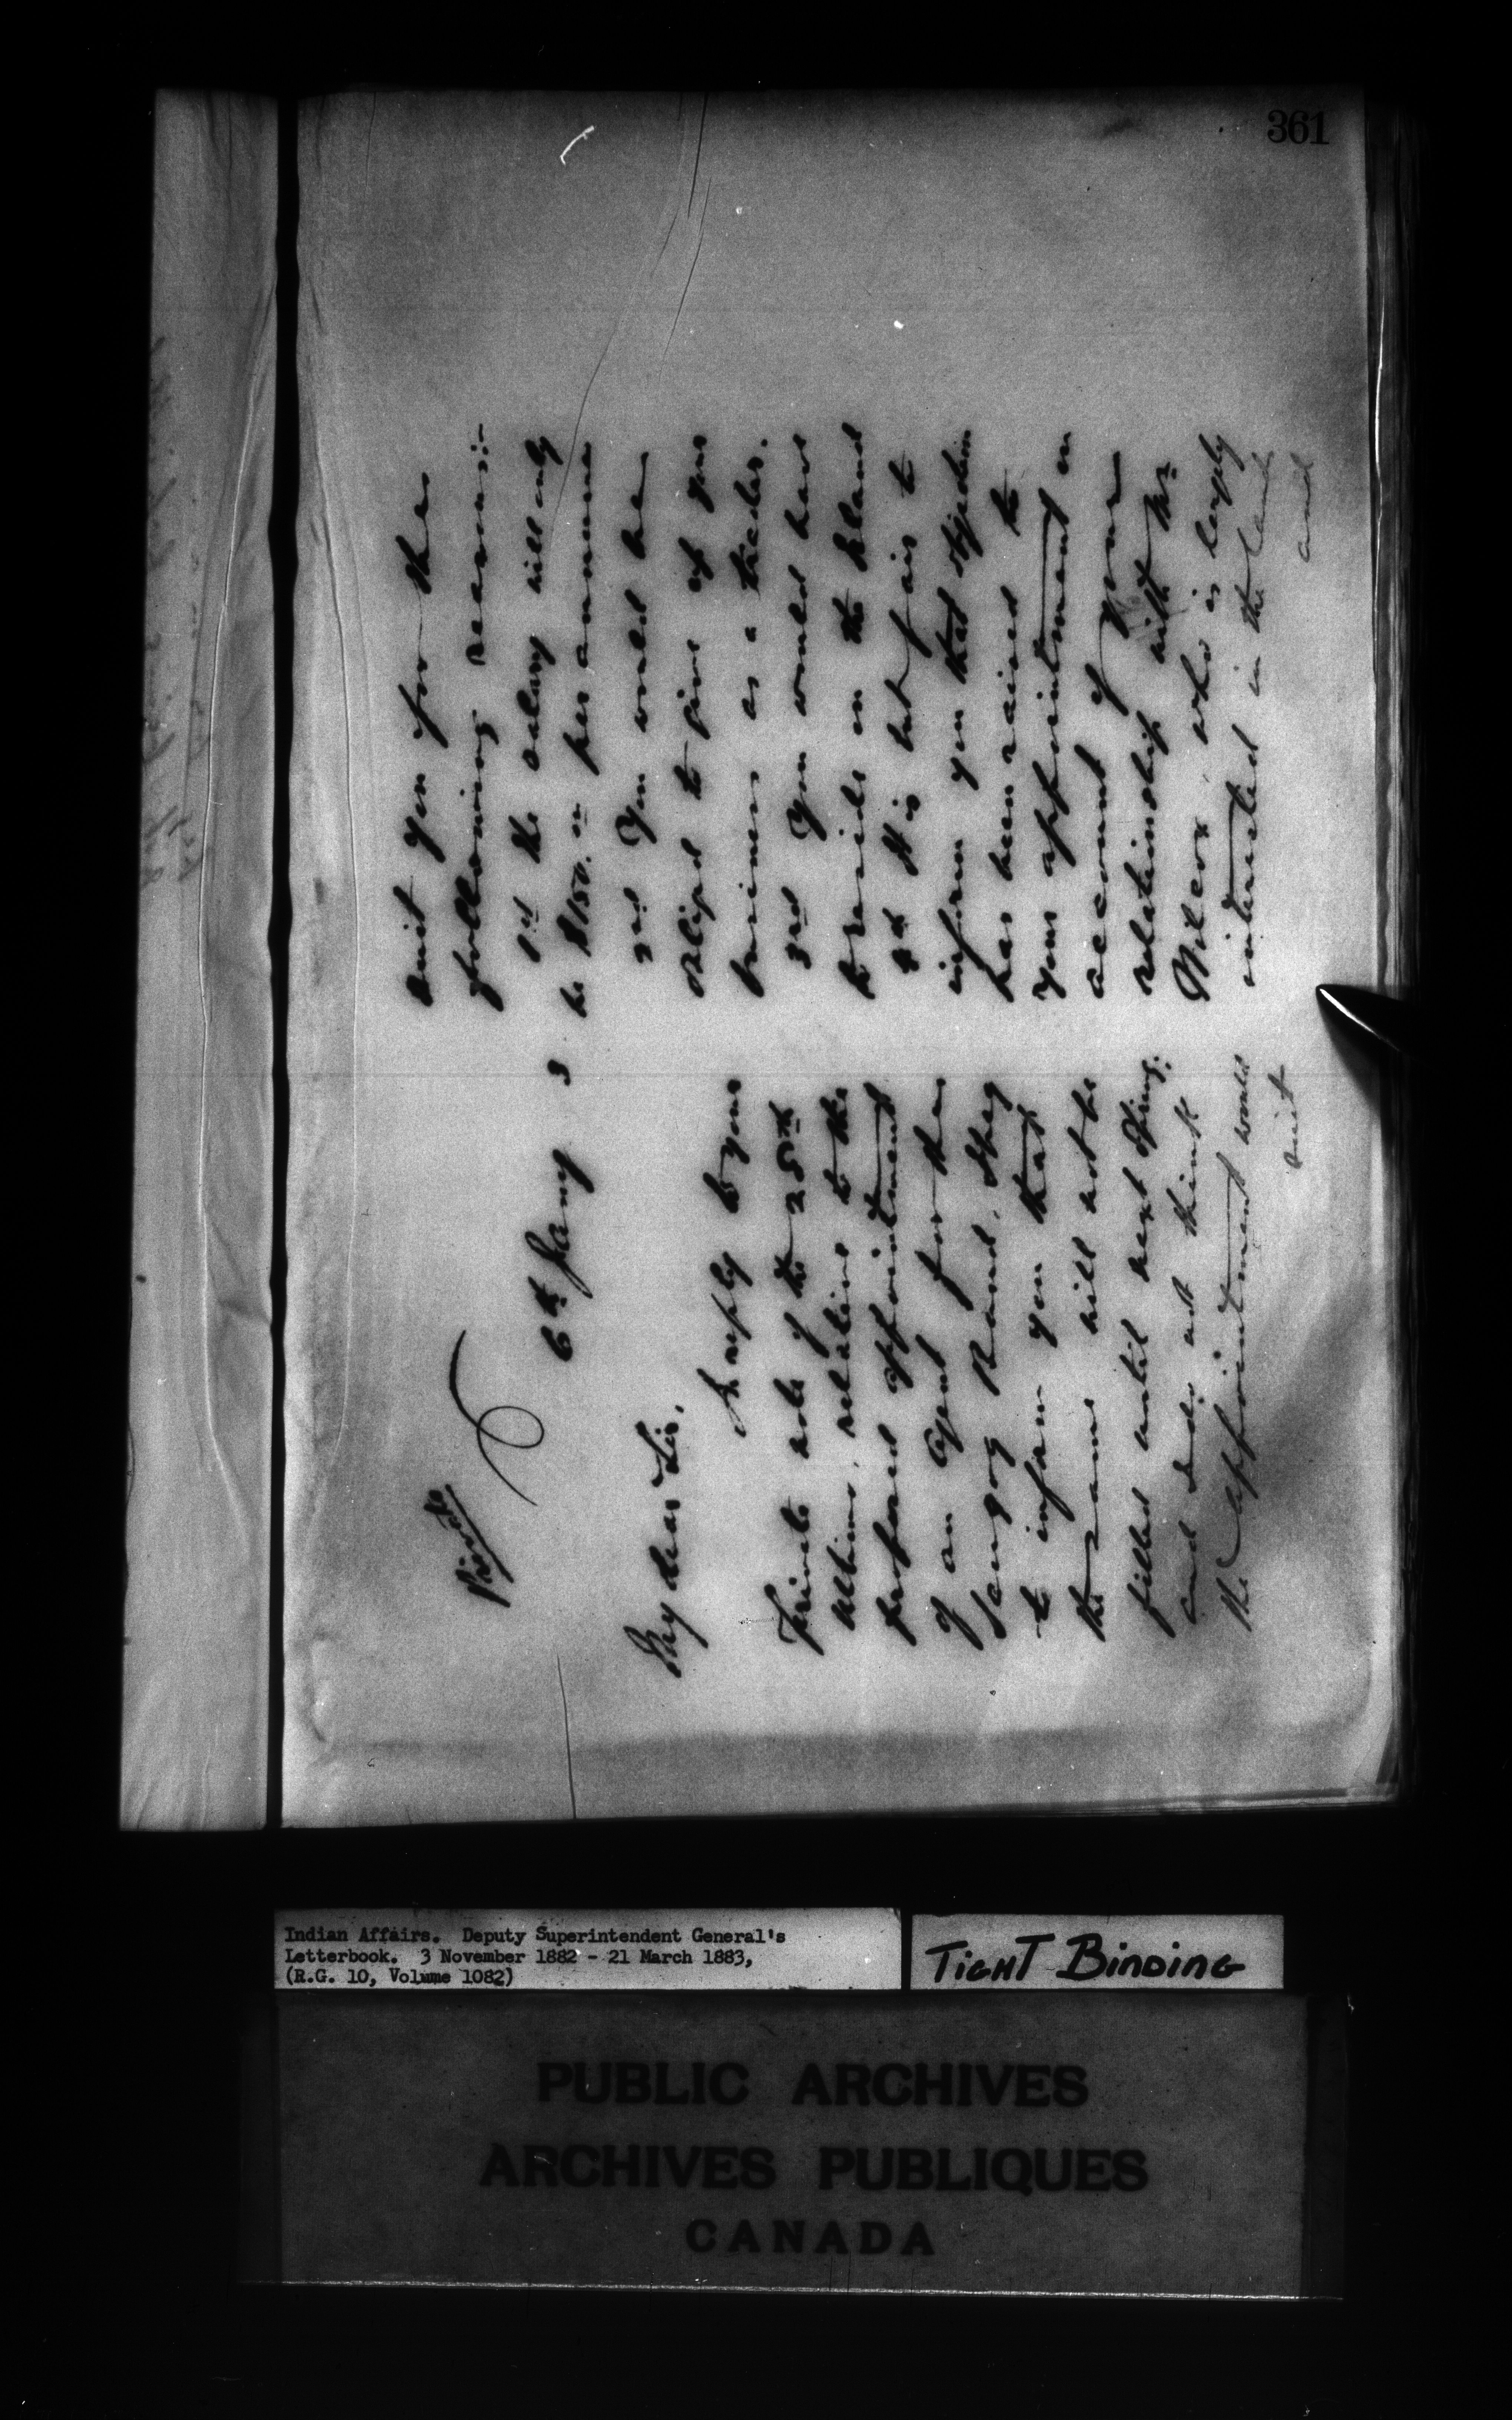 361
Private
6th Jany 3
My dear Sir,
In reply to your
Private note of the 25th
Ultimo, relative to the
proposed appointment
of an Agent for the
Scugog Band, I beg
to inform you that
the same will not be
filled until next Spring.
and I do not think
the appointment would
suit
suit you for the
following reasons:-
1st the salary will only
be $150.00 per annum
2nd You would be
obliged to give up your
business as a trader.
3rd You would have
to reside on the Island
4th It is but fair to
inform you that objection
has been raised to
your appointment on
account of your
relationship with Mr
who is largely
interested in the land
and
Indian Affairs. Deputy Superintendent General's
Letterbook. 3 November 1882 - 21 March 1883,
(R.G. 10, Volume 1082)
TIGHT BINDING
PUBLIC ARCHIVES
ARCHIVES PUBLIQUES
CANADA